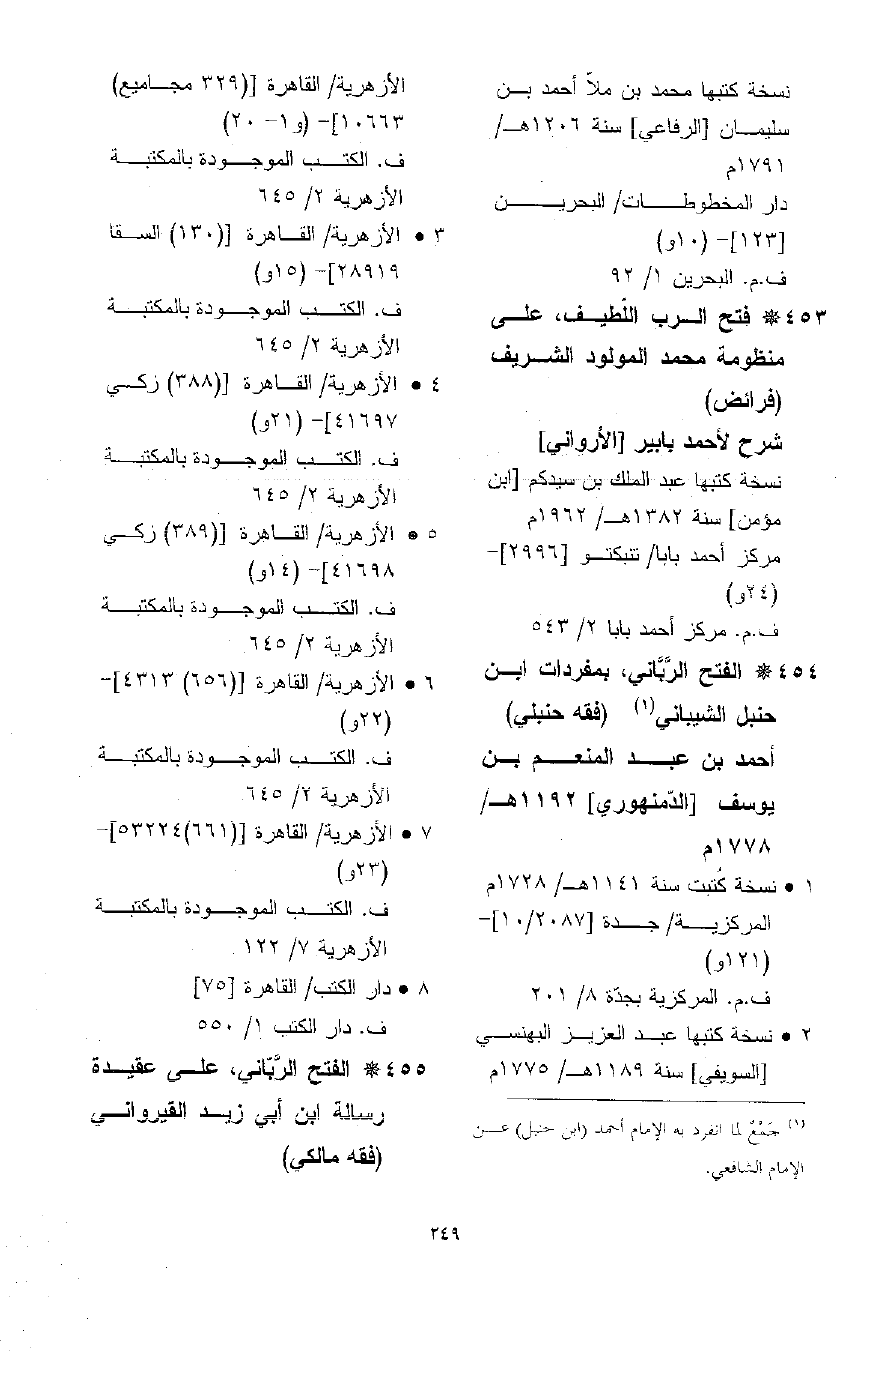 نسخة كتبها محمد بن ملاّ أحمد بـن
سليمـــان [الرفاعي] سنة ١٢٠٦هــ/
١٧٩١م
دار المخطوطـــات/ البحريـــن
[١٢٣]- (١٠و)
ف.م. البحرين ١/ ٩٢
٤٥٣ * فتح الــرب اللّطيــف، علــى
منظومة محمد المولود الشــريف
(فرائض)
شرح لأحمد بابير [الأرواني]
نسخة كتبها عبد الملك بن سيدكم [ابن
مؤمن] سنة ١٣٨٢هــ/ ١٩٦٢م
مركز أحمد بابا/ تنبكتــو [٢٩٩٦]-
(٢٤و)
ف.م. مركز أحمد بابا ٢/ ٥٤٣
٤٥٤ * الفتح الرَّبَّاني، بمفردات ابــن
حنبل الشيباني(١) (فقه حنبلي)
أحمد بن عبــد المنعــم بــن
يوسف [الدّمنهوري] ١١٩٢هــ/
١٧٧٨م
١ • نسخة كُتبت سنة ١١٤١هــ/ ١٧٢٨م
المركزيــة/ جــدة [١٠/٢٠٨٧]-
(١٢١و)
ف.م. المركزية بجدّة ٨/ ٢٠١
٢ • نسخة كتبها عبــد العزيــز البهنســي
[السويفي] سنة ١١٨٩هــ/ ١٧٧٥م
(١) جَمْعٌ لما انفرد به الإمام أحمد (ابن حنبل) عــن
الإمام الشافعي.
الأزهرية/ القاهرة [(٣٢٩ مجــاميع)
١٠٦٦٣]- (و١- ٢٠)
ف. الكتــب الموجــودة بالمكتبــة
الأزهرية ٢/ ٦٤٥
٣ • الأزهرية/ القــاهرة [(١٣٠) الســقا
٢٨٩١٩]- (١٥و)
ف. الكتــب الموجــودة بالمكتبــة
الأزهرية ٢/ ٦٤٥
٤ • الأزهرية/ القــاهرة [(٣٨٨) زكــي
٤١٦٩٧]- (٢١و)
ف. الكتــب الموجــودة بالمكتبــة
الأزهرية ٢/ ٦٤٥
٥ • الأزهرية/ القــاهرة [(٣٨٩) زكــي
٤١٦٩٨]- (١٤و)
ف. الكتــب الموجــودة بالمكتبــة
الأزهرية ٢/ ٦٤٥
٦ • الأزهرية/ القاهرة [(٦٥٦) ٤٣١٣]-
(٢٢و)
ف. الكتــب الموجــودة بالمكتبــة
الأزهرية ٢/ ٦٤٥
٧ • الأزهرية/ القاهرة [(٦٦١)٥٣٢٢٤]-
(٢٣و)
ف. الكتــب الموجــودة بالمكتبــة
الأزهرية ٧/ ١٢٢
٨ • دار الكتب/ القاهرة [٧٥]
ف. دار الكتب ١/ ٥٥٠
٤٥٥ * الفتح الرَّبّاني، علــى عقيــدة
رسالة ابن أبي زيــد القيروانــي
(فقه مالكي)
٢٤٩